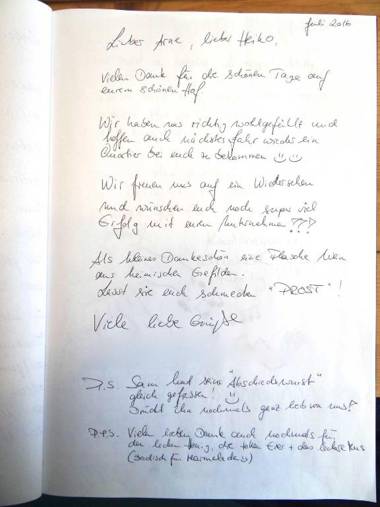 Juli 2016
Lieber Arne, lieber Heiko,
Vielen Dank für die schönen Tage auf
eurem schönen Hof
Wir haben uns richtig wohlgefühlt und
hoffen auch nächstes Jahr wieder ein
Quartier bei euch zu bekommen
Wir freuen uns auf ein Wiedersehen
und wünschen euch noch super viel
Erfolg mit eurem Unternehmen
Als kleines Dankeschön eine Flasche Wein
aus heimischen Gefilden.
Lasst sie euch schmecken "PROST"!
Viele liebe Grüße
P.S. Sam hat seine "Abschiedswurst"
gleich gefressen!
Drückt ihn nochmals ganz lieb von uns!
P.P.S. Vielen lieben Dank auch nochmals für
den Honig, die tollen Eier + das leckere
(Badisch für Marmelade)